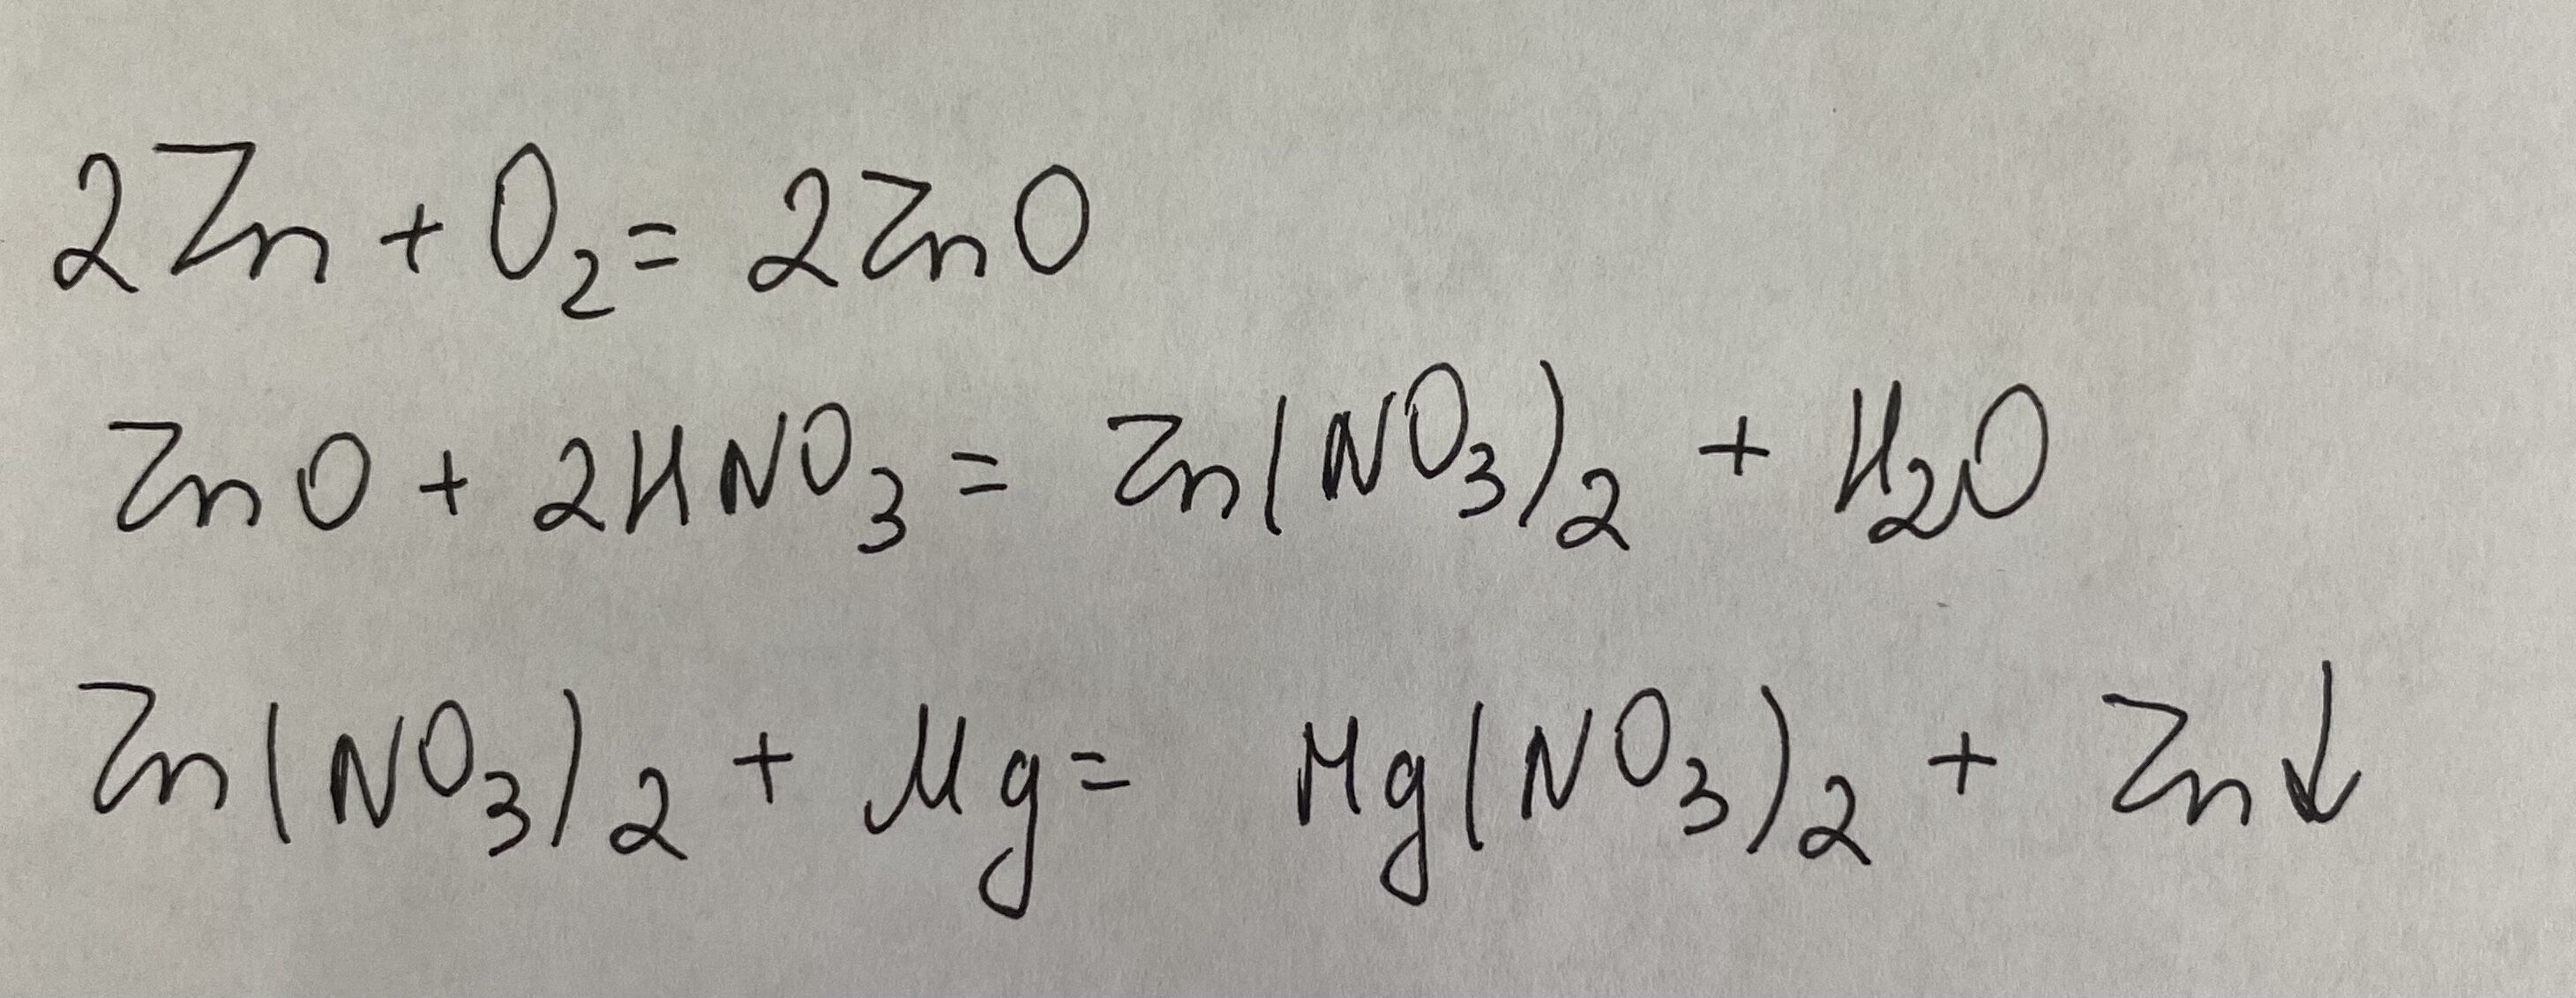 2Zn + O₂ = 2ZnO
ZnO + 2HNO₃ = Zn(NO₃)₂ + H₂O
Zn(NO₃)₂ + Mg = Mg(NO₃)₂ + Zn↓